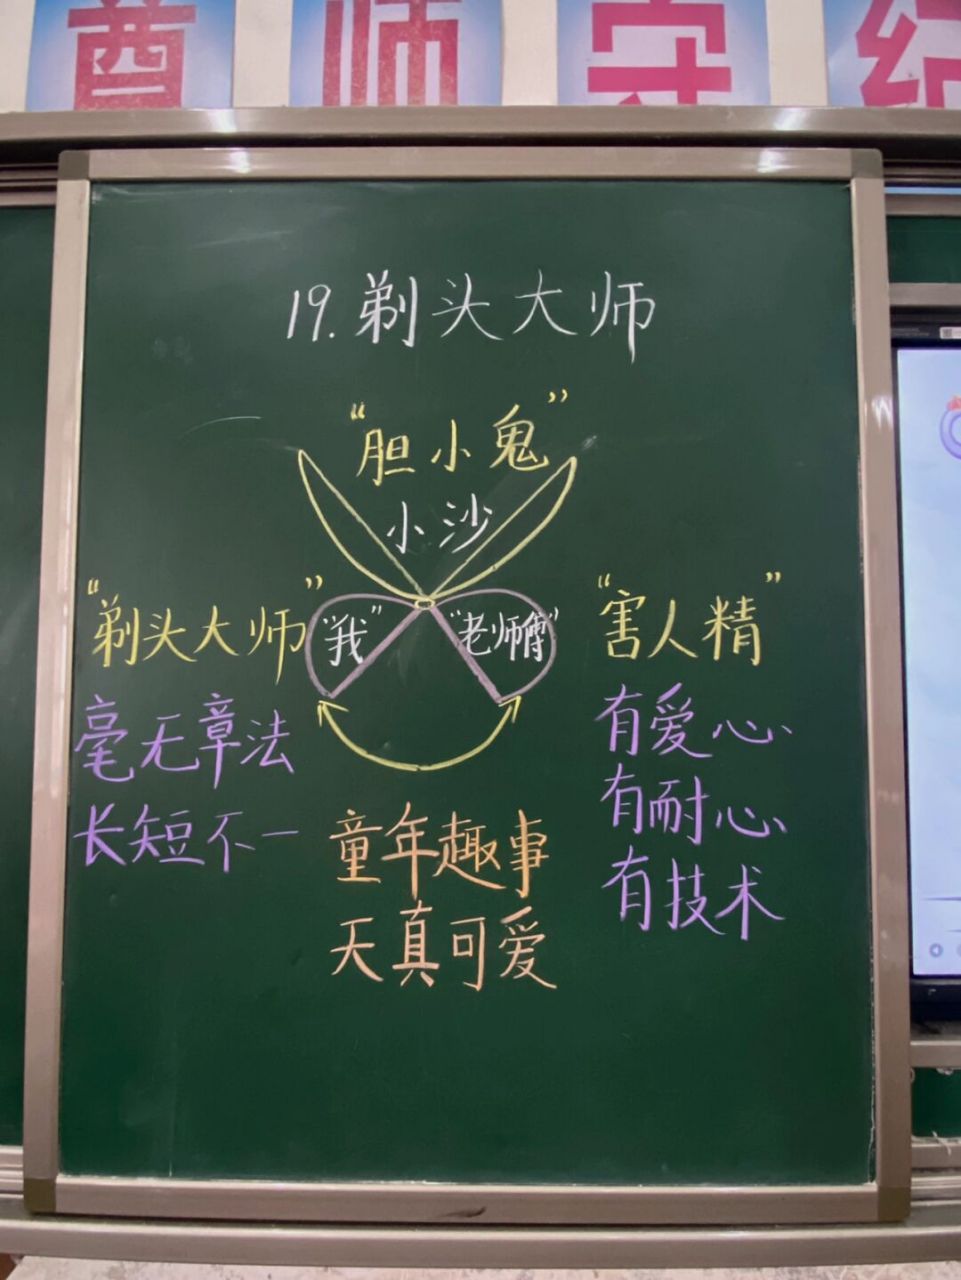 尊师守纪
19.剃头大师
“胆小鬼”
小沙
“剃头大师”
“我”
“老师傅”
“害人精”
毫无章法
长短不一
有爱心、
有耐心、
有技术
童年趣事
天真可爱